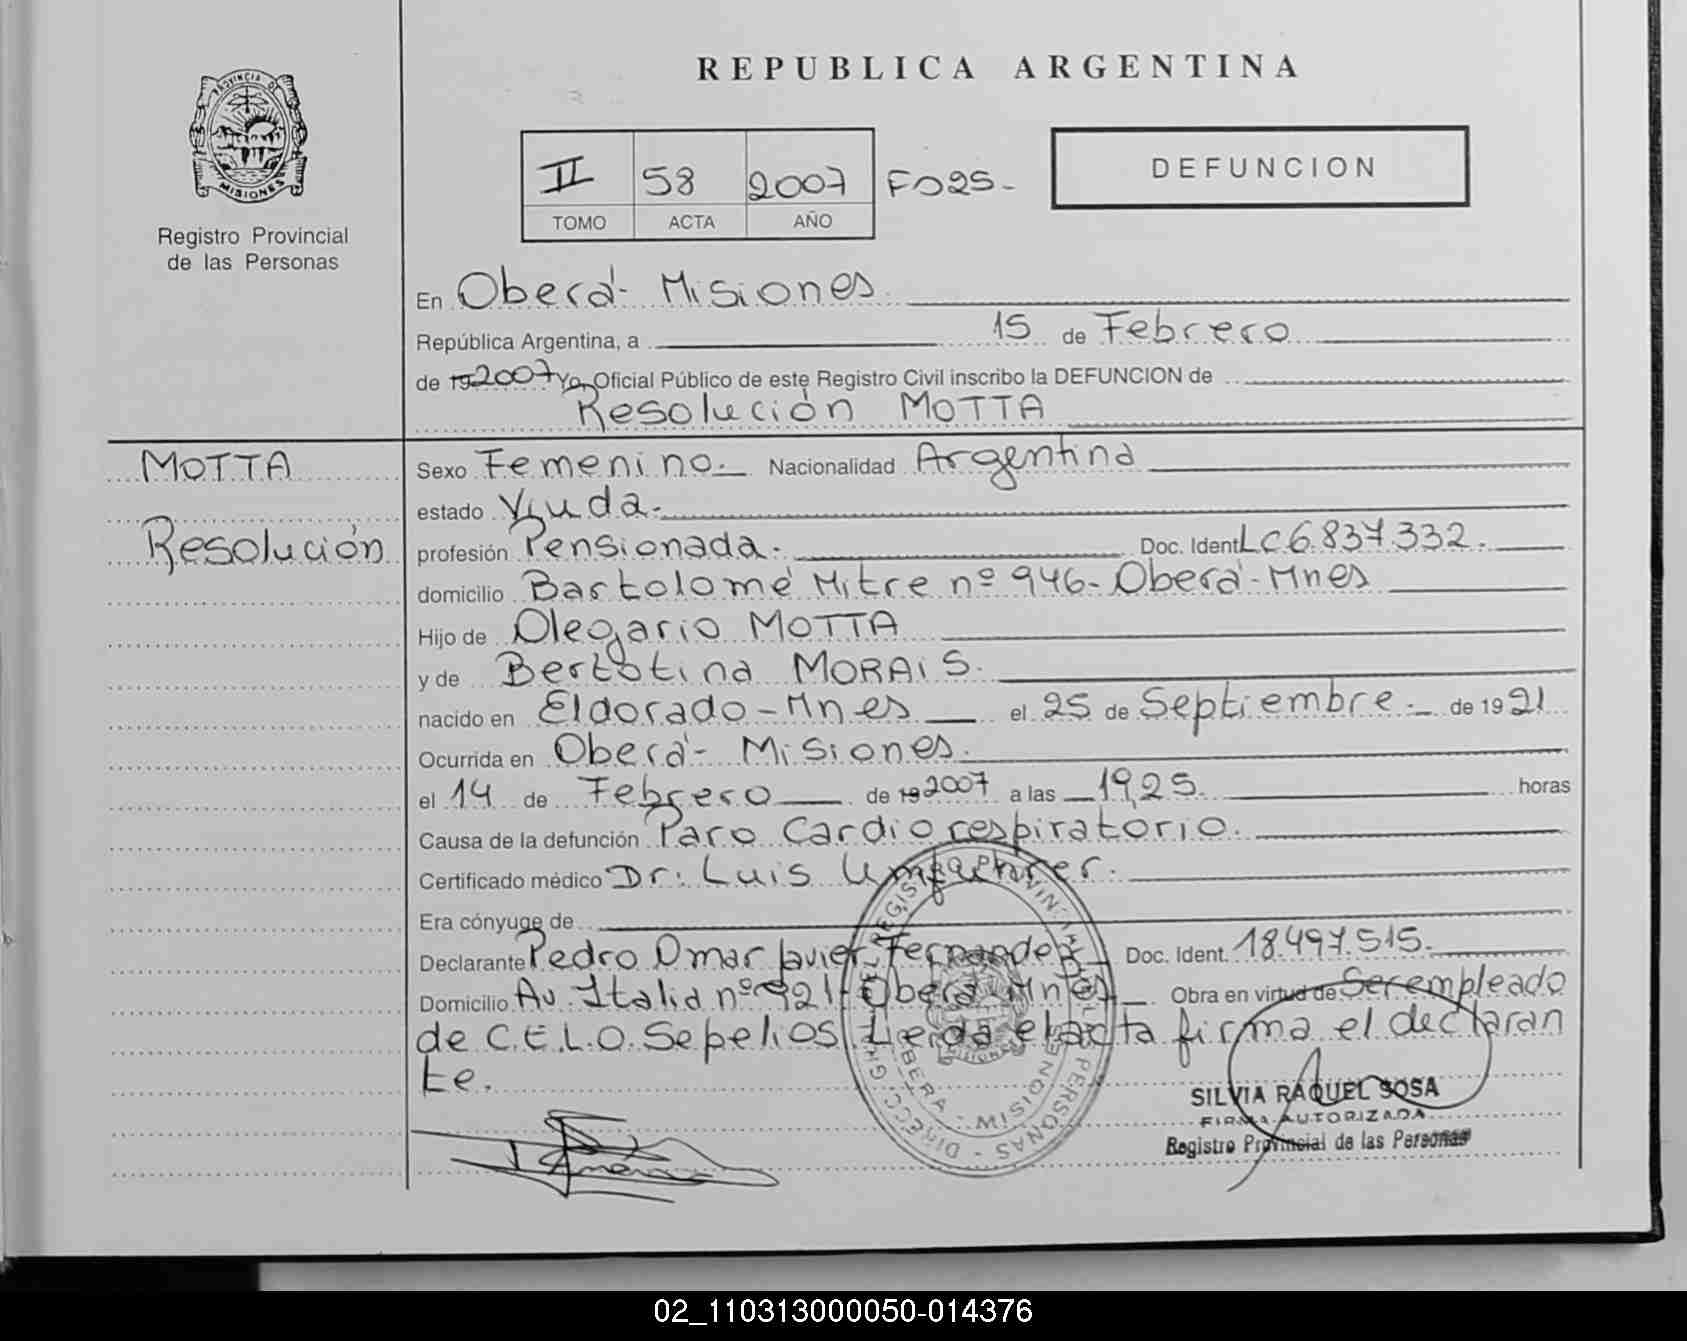 REPUBLICA ARGENTINA
PROVINCIA DE MISIONES
Registro Provincial
de las Personas
II 58 2007 Fo25-
TOMO ACTA AÑO
DEFUNCION
En Oberá- Misiones
República Argentina, a 15 de Febrero
de 19 2007 Yo, Oficial Público de este Registro Civil inscribo la DEFUNCION de
Resolución MOTTA
MOTTA
Resolución
Sexo Femenino. Nacionalidad Argentina
estado Viuda.
profesión Pensionada. Doc. Ident. LC 6.837.332.
domicilio Bartolomé Mitre nº 946- Oberá-Mnes
Hijo de Olegario MOTTA
y de Bertotina MORAIS.
nacido en Eldorado-Mnes el 25 de Septiembre. de 1921
Ocurrida en Oberá- Misiones.
el 14 de Febrero de 19 2007 a las 19,25. horas
Causa de la defunción Paro Cardiorespiratorio.
Certificado médico Dr: Luis
Era cónyuge de
Declarante Pedro Omar Javier Fernandez Doc. Ident. 18.497.515.
Domicilio Av. Italia nº 921- Oberá Mnes Obra en virtud de Ser empleado
de C.E.L.O. Sepelios Leida el acta firma el declaran
te.
SILVIA RAQUEL SOSA
FIRMA AUTORIZADA
Registro Provincial de las Personas
02_110313000050-014376